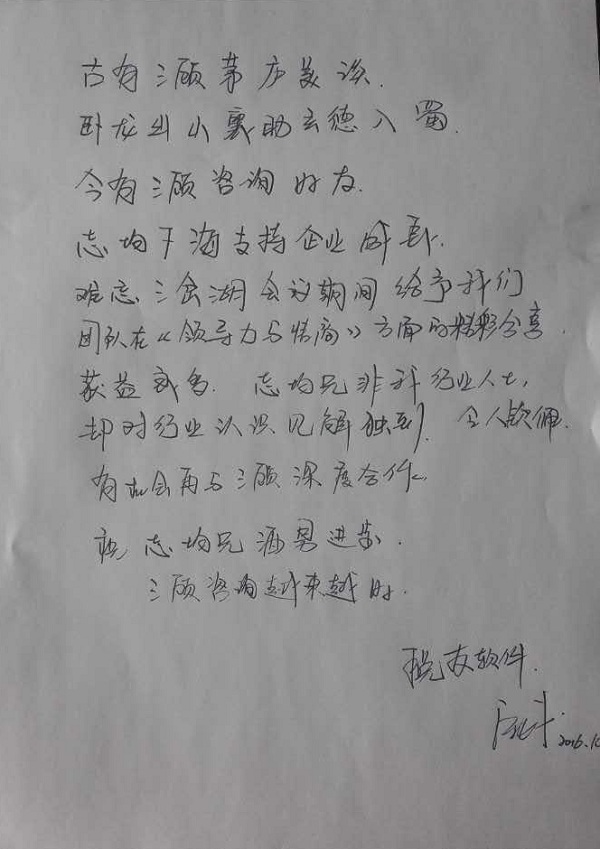 古有三顾茅庐美谈.
卧龙出山襄助玄德入蜀.
今有三顾咨询好友.
志均下海支持企业成长.
难忘三舍湖会议期间给予我们
团队在《领导力与情商》方面的精彩分享.
获益良多. 志均兄非我行业人士,
却对行业认识见解独到. 令人钦佩.
有机会再与三顾深度合作.
祝 志均兄酒男进步.
三顾咨询越来越好.
税友软件.
2016.10